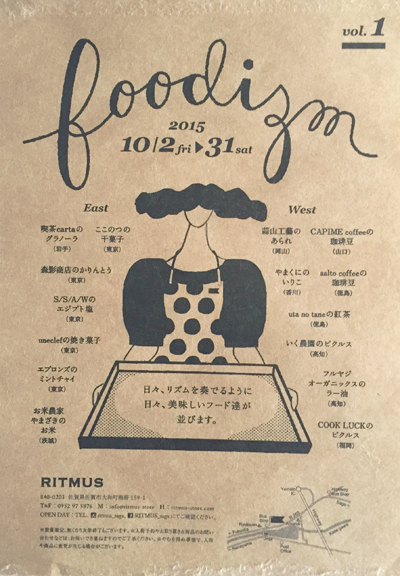 vol. 1
foodizm
2015
10/2 fri ▶ 31 sat
East
喫茶cartaの
グラノーラ
(岩手)
ここのつの
干菓子
(東京)
森影商店のかりんとう
(東京)
S/S/A/Wの
エジプト塩
(東京)
uneclefの焼き菓子
(東京)
エプロンズの
ミントチャイ
(東京)
お米農家
やまざきの
お米
(茨城)
West
蒜山工藝の
あられ
(岡山)
CAPIME coffeeの
珈琲豆
(山口)
やまくにの
いりこ
(香川)
aalto coffeeの
珈琲豆
(徳島)
uta no taneの紅茶
(徳島)
いく農園のピクルス
(高知)
フルヤジ
オーガニックスの
ラー油
(高知)
COOK LUCKの
ピクルス
(福岡)
日々、リズムを奏でるように
日々、美味しいフード達が
並びます。
RITMUS
OPEN DAY
RITMUS_sagaにてご確認ください。
Post
Office